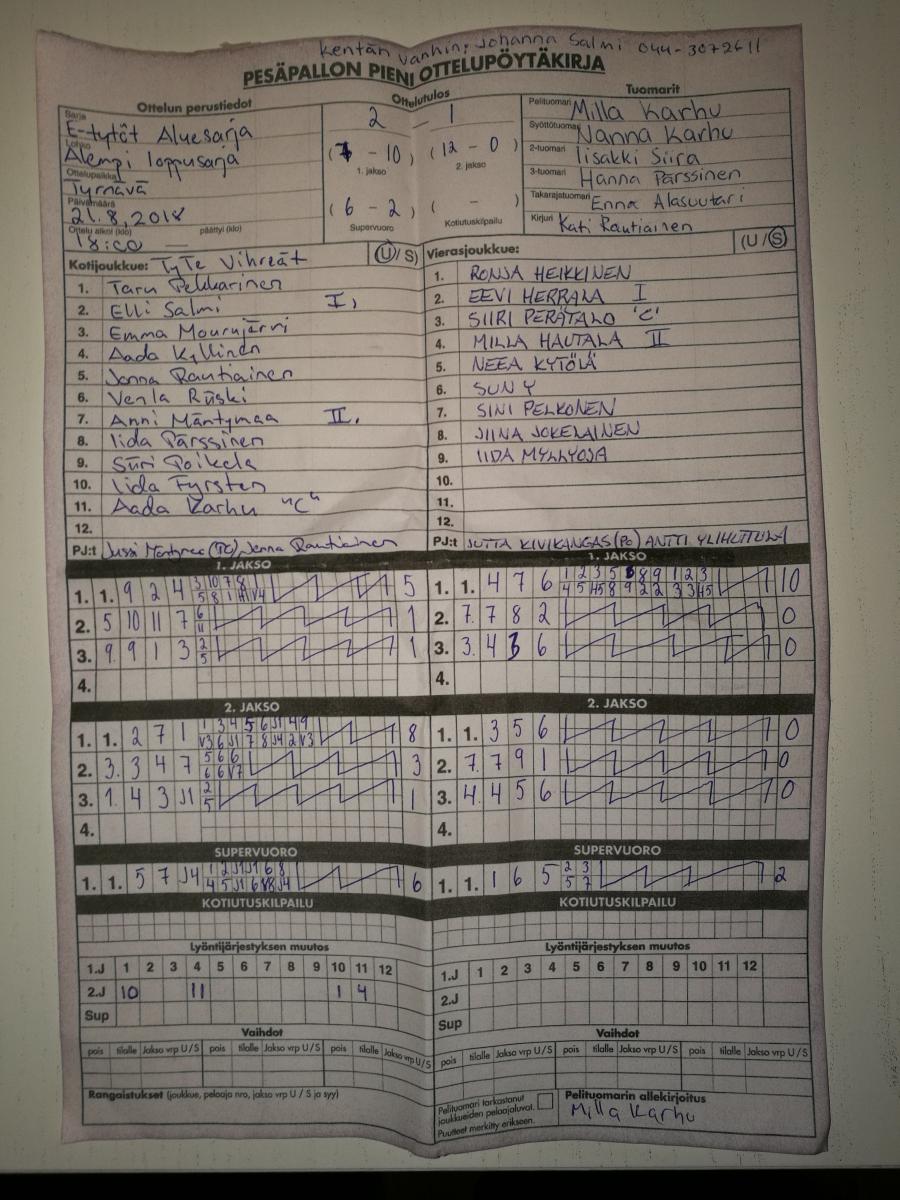 Kentän vanhin; Johanna Salmi 044-3072611
PESÄPALLON PIENI OTTELUPÖYTÄKIRJA
Ottelun perustiedot
Sarja
E-tytöt Aluesarja
Lohko
Alempi loppusarja
Ottelupaikka
Tyrnävä
Päivämäärä
21.8.2018
Ottelu alkoi (klo) päättyi (klo)
18:00 —
Ottelutulos
2 – 1
( – 10 ) (12 – 0 )
1. jakso 2. jakso
( 6 – 2 ) ( – )
Supervuoro Kotiutuskilpailu
Tuomarit
Pelituomari Milla Karhu
Syöttötuomari Nanna Karhu
2-tuomari Iisakki Siira
3-tuomari Hanna Pärssinen
Takarajatuomari Enna Alasuutari
Kirjuri Kati Rautiainen
Kotijoukkue: TyTe Vihreät (U/S)
1. Taru Pekkarinen
2. Elli Salmi I,
3. Emma Mourujärvi
4. Aada Kyllinen
5. Jenna Rautiainen
6. Venla Ruski
7. Anni Mäntymaa II.
8. Iida Pärssinen
9. Siiri Poikela
10. Iida Fyrsten
11. Aada Karhu "C"
12.
PJ:t Jussi Mäntymaa (PO), Jenna Rautiainen
Vierasjoukkue: (U/S)
1. RONJA HEIKKINEN
2. EEVI HERRALA I
3. SIIRI PERÄTALO 'C'
4. MILLA HAUTALA II
5. NEEA KYTÖLÄ
6. SUN Y
7. SINI PELKONEN
8. JIINA JOKELAINEN
9. IIDA MYLLYOJA
10.
11.
12.
PJ:t JUTTA KIVIKANGAS (PO) ANTTI YLIHUTTULA
1. JAKSO
1. 1. 9 2 4 5
2. 5 10 11 7 6 11 1
3. 9. 9 1 3 2 5 1
4.
2. JAKSO
1. 1. 2 7 1 8
2. 3. 3 4 7 5 6 6 6 6 V7 3
3. 1. 4 3 J1 2 5 1
4.
SUPERVUORO
1. 1. 5 7 J4 6
KOTIUTUSKILPAILU
1. JAKSO
1. 1. 4 7 6 10
2. 7. 7 8 2 0
3. 3. 4 3 6 0
4.
2. JAKSO
1. 1. 3 5 6 0
2. 7. 7 9 1 0
3. 4. 4 5 6 0
4.
SUPERVUORO
1. 1. 1 6 5 2 3 5 7 2
KOTIUTUSKILPAILU
Lyöntijärjestyksen muutos
1.J 1 2 3 4 5 6 7 8 9 10 11 12
2.J 10 11 1 4
Sup
Vaihdot
pois tilalle Jakso vrp U/S pois tilalle Jakso vrp U/S pois tilalle Jakso vrp U/S
Rangaistukset (joukkue, pelaaja nro, jakso vrp U / S ja syy)
Lyöntijärjestyksen muutos
1.J 1 2 3 4 5 6 7 8 9 10 11 12
2.J
Sup
Vaihdot
pois tilalle Jakso vrp U/S pois tilalle Jakso vrp U/S pois tilalle Jakso vrp U/S
Pelituomari tarkastanut
joukkueiden pelaajaluvat.
Puutteet merkitty erikseen.
Pelituomarin allekirjoitus
Milla Karhu